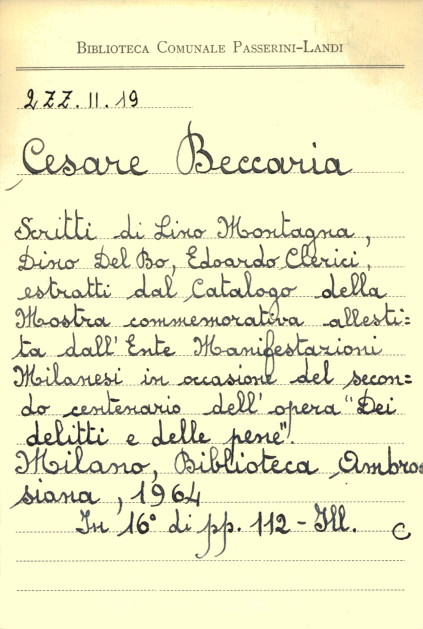 BIBLIOTECA COMUNALE PASSERINI-LANDI
2ZZ.II.19
Cesare Beccaria
Scritti di Lino Montagna,
Dino Del Bo, Edoardo Clerici,
estratti dal Catalogo della
Mostra commemorativa allesti=
ta dall'Ente Manifestazioni
Milanesi in occasione del secon=
do centenario dell'opera "Dei
delitti e delle pene".
Milano, Biblioteca Ambro
siana, 1964
In 16° di pp. 112 - Ill.
C